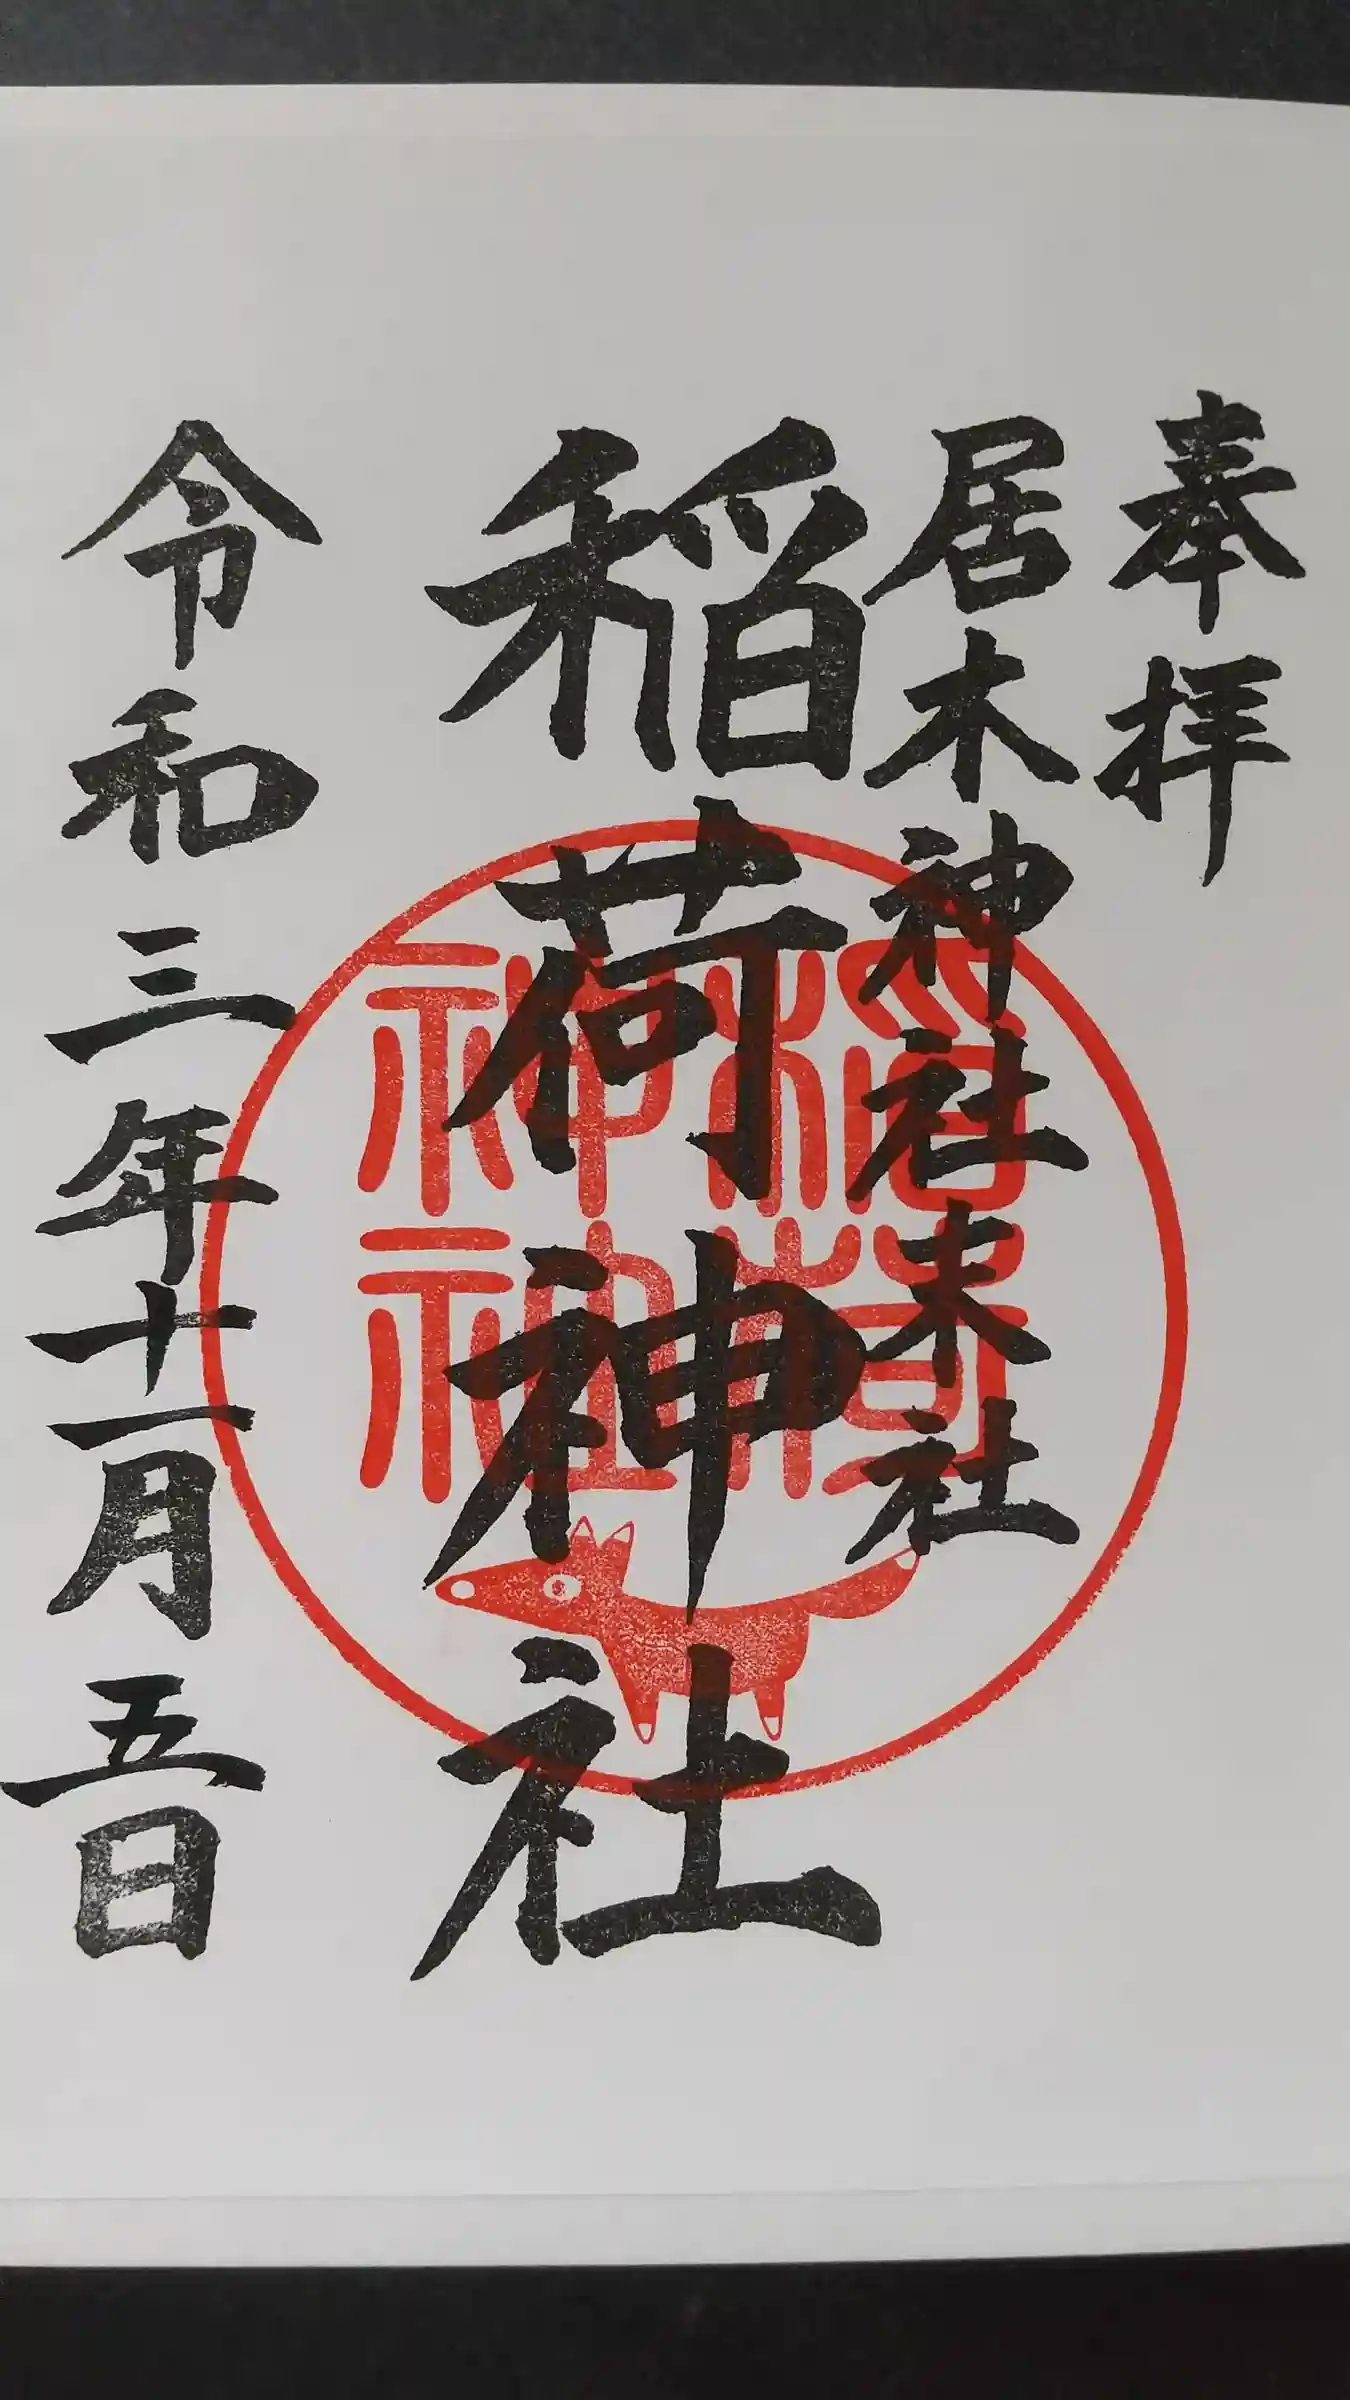 奉拝
居木神社末社
稲荷神社
令和三年十一月五日
稲荷
神社